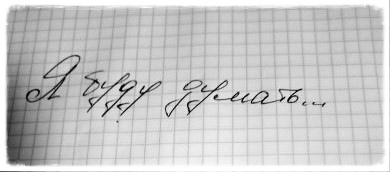 Я буду думать...